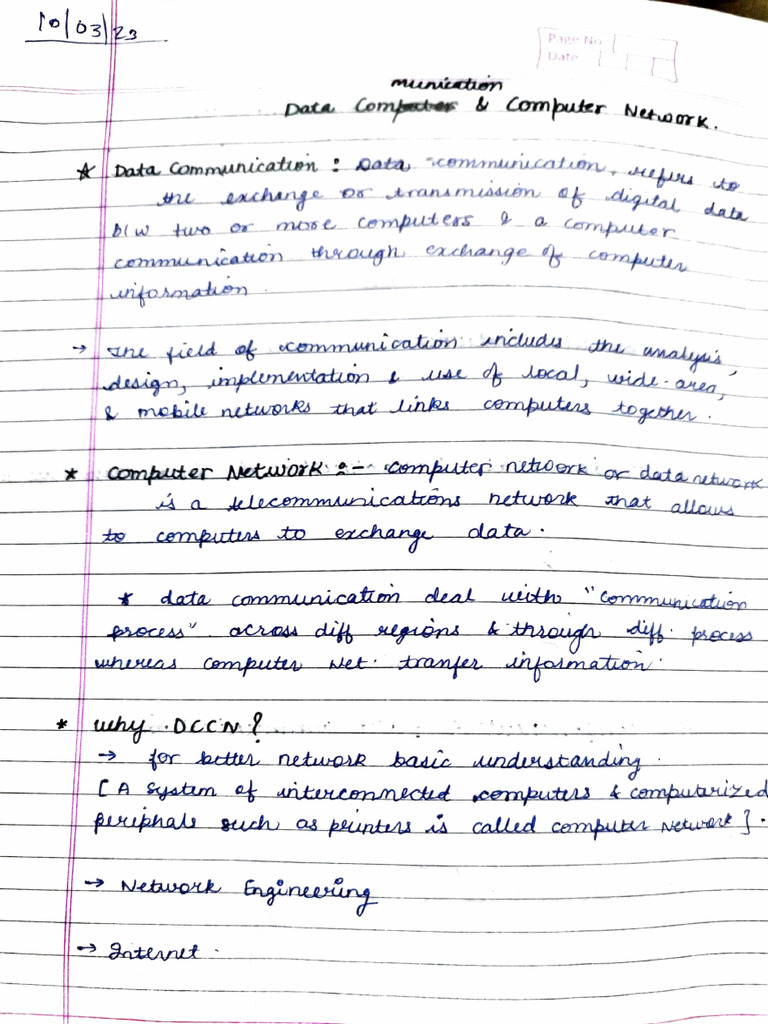 10/03/23
Page No
Date
munication
Data Computer & Computer Network.
* Data Communication : Data communication, refers to
the exchange or transmission of digital data
b/w two or more computers & a computer
communication through exchange of computer
information.
→ The field of communication includes the analysis,
design, implementation & use of local, wide-area,
& mobile networks that links computers together.
* Computer Network :- Computer network or data network
is a telecommunications network that allows
to computers to exchange data.
* data communication deal with "communication
process" across diff regions & through diff. process
whereas computer Net. tranfer information.
* why DCCN?
→ for better network basic understanding.
[ A system of interconnected computers & computerized
periphals such as printers is called computer network ].
→ Network Engineering
→ Internet.